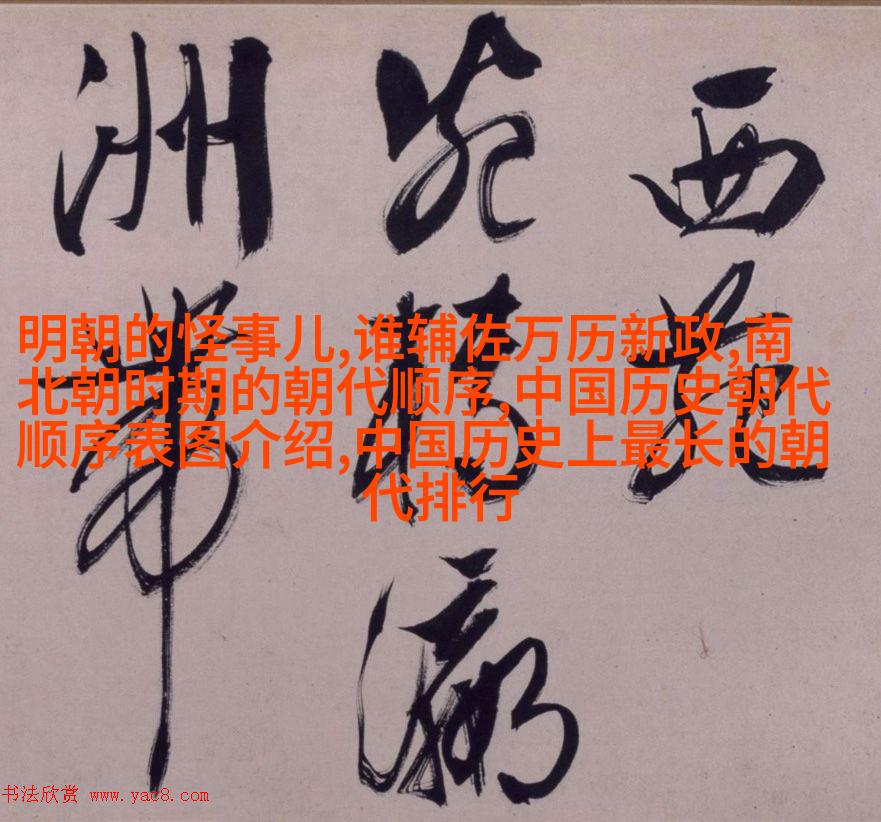 西苑
瀛
洲帶
明朝的怪事儿,谁辅佐万历新政,南
北朝时期的朝代顺序,中国历史朝代
顺序表图介绍,中国历史上最长的朝
代排行
书法欣赏 www.yac8.com